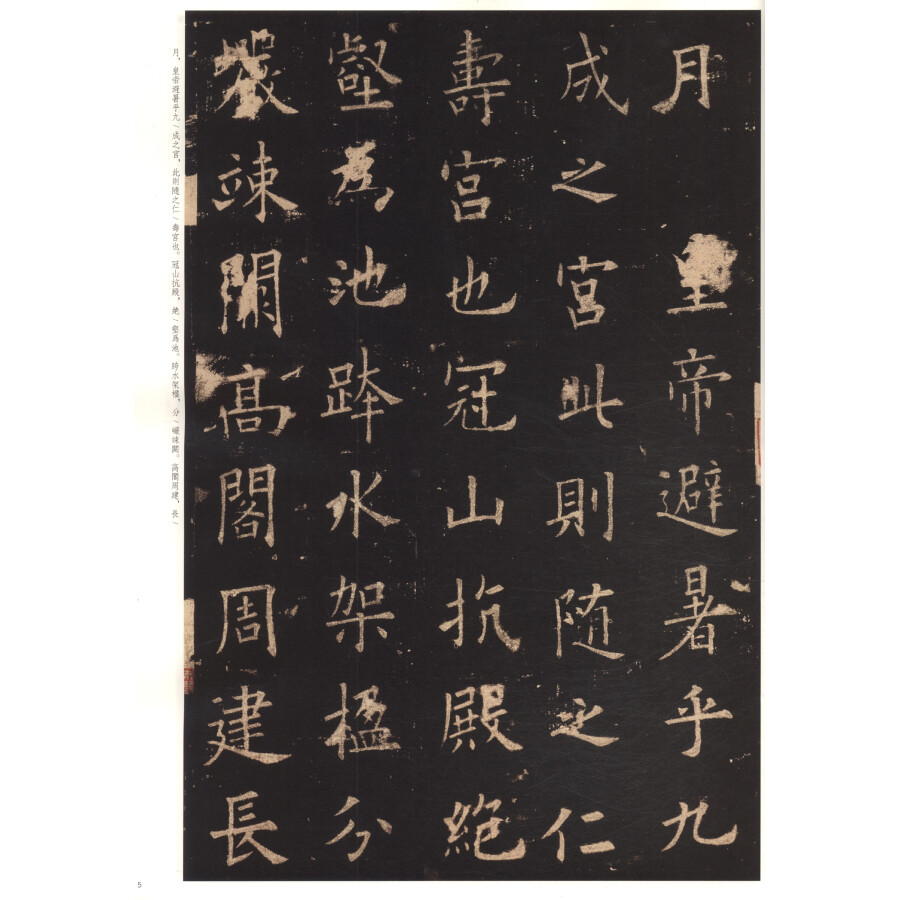 月皇帝避暑乎九
成之宮此則随之仁
壽宮也冠山抗殿絶
壑為池跨水架楹分
巖竦闕高閣周建長
月，皇帝避暑乎九/成之宫，此則隨之仁/壽宫也。冠山抗殿，絶/壑爲池。跨水架楹，分/巖竦闕。高閣周建，長/
5